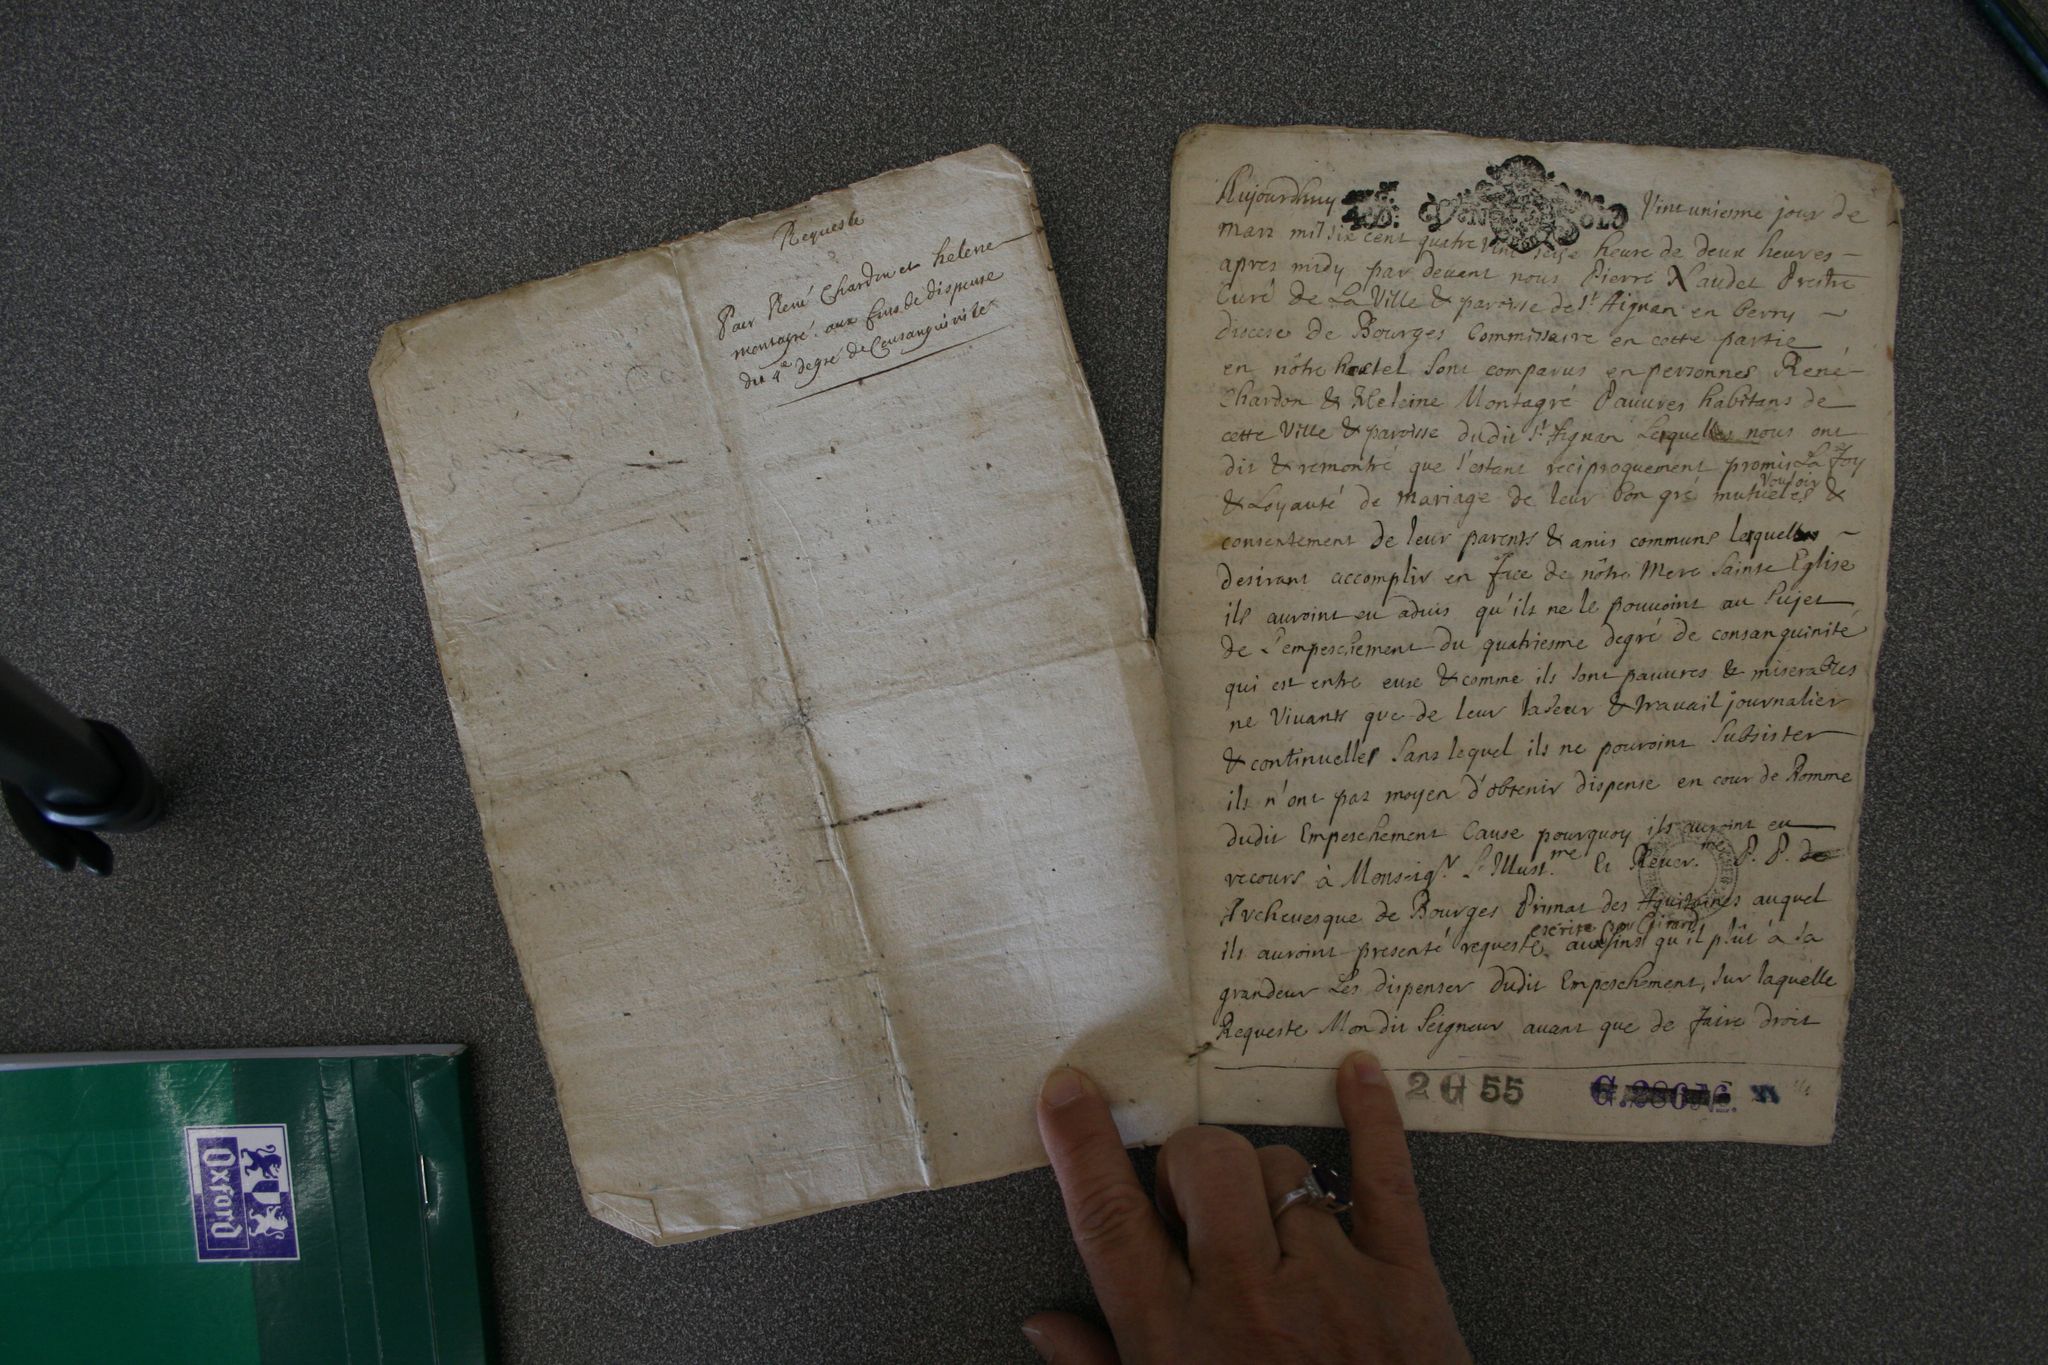 Requeste
Pour René Chardon et helene
montagré aux fins de dispense
du 4e degré de Consanguinité
Aujourdhuy Vint uniesme jour de
mars mil six cent quatre vint seize heure de deux heures
apres midy par devant nous Pierre Naudet Prestre
Curé de La Ville & paroisse de St Aignan en Berry
diocese de Bourges Commissaire en cette partie
en nôtre hostel sont comparus en personnes René
Chardon & Heleine Montagré Pauures habitans de
cette Ville & paroisse dudit St Aignan Lesquelles nous ont
dit & remontré que s'estant reciproquement promis La Foy
& Loyauté de mariage de leur bon gré mutueles Vouloir &
consentement de leur parents & amis communs lequel
desirant accomplir en face de nôtre Mere Sainte Eglise
ils auroint eu aduis qu'ils ne le pouuoint au sujet
de L'empeschement du quatriesme degré de consanguinité
qui est entre euse & comme ils sont pauures & miserables
ne Viuants que de leur labeur & trauail journalier
& continuelle sans lequel ils ne pouroint subsister
ils n'ont pas moyen d'obtenir dispense en cour de Romme
dudit Empeschement Cause pourquoy ils auroint eu
recours à Monseigr. L'Illustme. Et Reuerme P. P.
Archeuesque de Bourges Primat des Aquitaines auquel
ils auroint presenté requeste escrite par Girard aux fins qu'il plût à sa
grandeur Les dispenser dudit Empeschement, sur laquelle
Requeste Mondit Seigneur auant que de faire droit
2 G 55
Oxford